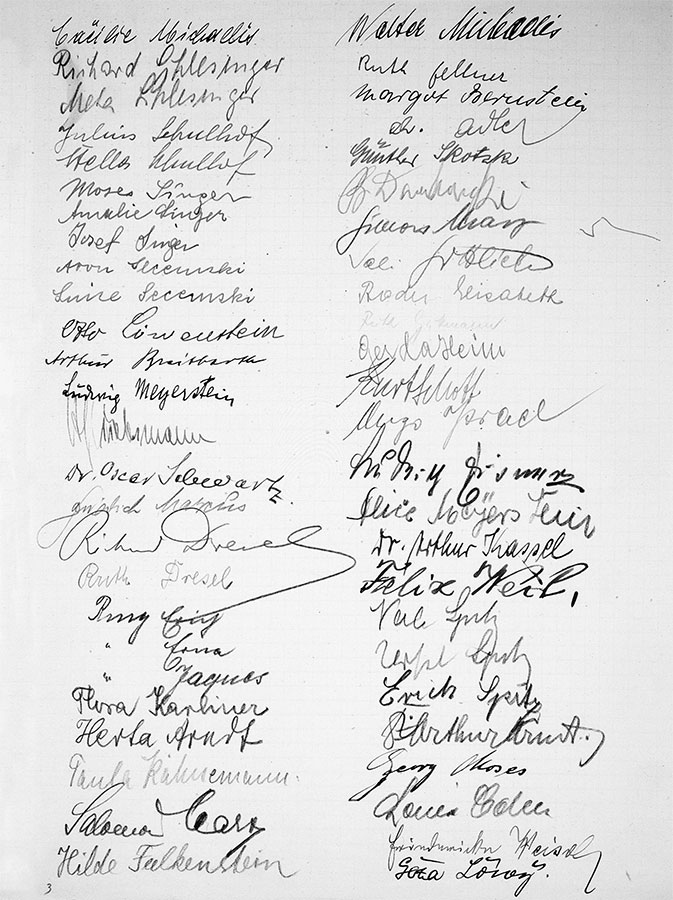 Michaelis
Richard Schlesinger
Meta Schlesinger
Julius Schulhof
Stella Schulhof
Moses Singer
Amalie Singer
Josef Singer
Aron Secemski
Luise Secemski
Otto Löwenstein
Arthur Breitbarth
Ludwig Meyerstein
Dr. Oscar Schwartz
Marcus
Richard Dresel
Ruth Dresel
Ring Erich
" Erna
" Jaques
Flora Karliner
Herta Arndt
Paula Kahnemann.
Salomon
Hilde Falkenstein
3
Walter Michaelis
Ruth Fellner
Margot Bernstein
adler
Günther Skotzki
Vali
Elisabeth
Ruth
Gerda Heim
Kurt
Hugo Israel
Ludwig
Alice Meyerstein
Dr. Arthur Kassel
Felix Weil,
Vera Spitz
Spitz
Erich Spitz
Arthur Arndt.
Georg Moses
Friedericke
Löwy.